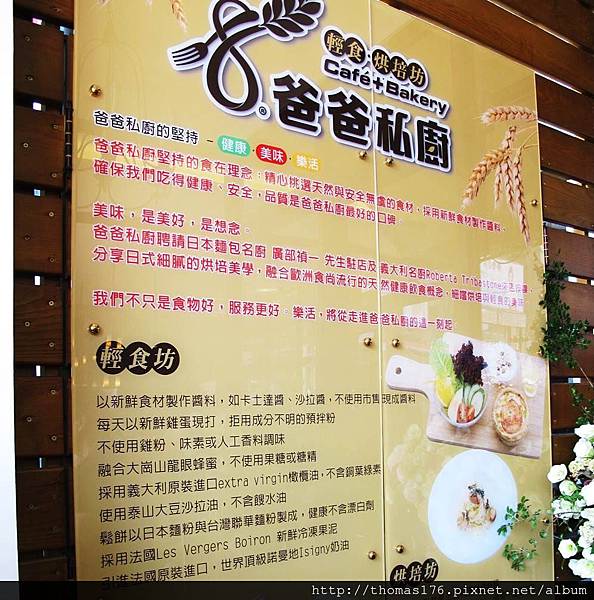 輕食·烘培坊
Café+Bakery
爸爸私廚
爸爸私廚的堅持 - 健康·美味·樂活
爸爸私廚堅持的食在理念：精心挑選天然與安全無慮的食材，採用新鮮食材製作醬料。
確保我們吃得健康、安全，品質是爸爸私廚最好的口碑。
美味，是美好，是想念。
爸爸私廚聘請日本麵包名廚 廣部禎一 先生駐店及義大利名廚Roberta Tribastone
分享日式細膩的烘培美學，融合歐洲食尚流行的天然健康飲食概念，細嚐烘培與輕食的美味
我們不只是食物好，服務更好。樂活，將從走進爸爸私廚的這一刻起
輕食坊
以新鮮食材製作醬料，如卡士達醬、沙拉醬，不使用市售現成醬料
每天以新鮮雞蛋現打，拒用成分不明的預拌粉
不使用雞粉、味素或人工香料調味
融合大崗山龍眼蜂蜜，不使用果糖或糖精
採用義大利原裝進口extra virgin橄欖油，不含銅葉綠素
使用泰山大豆沙拉油，不含餿水油
鬆餅以日本麵粉與台灣聯華麵粉製成，健康不含漂白劑
採用法國Les Vergers Boiron 新鮮冷凍果泥
引進法國原裝進口，世界頂級諾曼地Isigny奶油
烘培坊
http://thomas176.pixnet.net/album